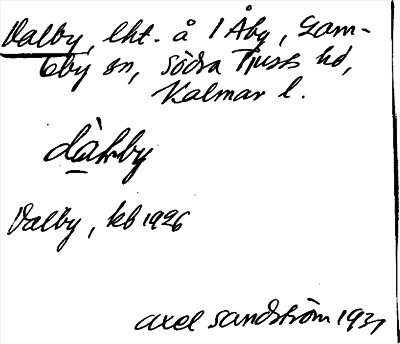 Dalby, lht. å 1 Åby, Gam-
leby sn, södra Tjusts hd,
Kalmar l.
dàlby
Dalby, kb 1926
Axel Sandström 1931